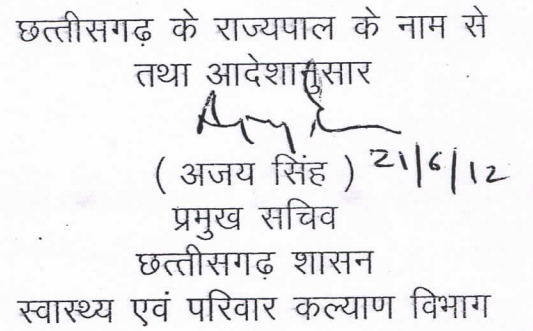 छत्तीसगढ़ के राज्यपाल के नाम से
तथा आदेशानुसार
( अजय सिंह ) 21/6/12
प्रमुख सचिव
छत्तीसगढ़ शासन
स्वास्थ्य एवं परिवार कल्याण विभाग